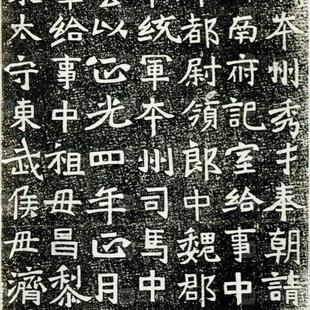 夲州秀才奉朝請
南府記室給事中
都尉領郎中魏郡
統軍夲州司馬中
以正光四年正月
給事中祖母昌黎
太守東武侯母濟